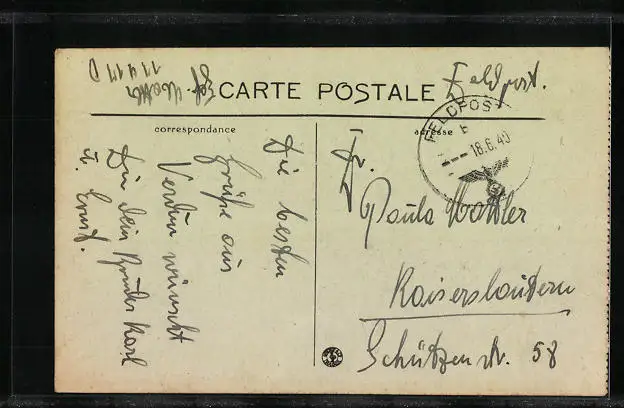 Gef. Mattler
11417 D
CARTE POSTALE
Feldpost.
correspondance
adresse
FELDPOST
b
18.6.40
Die besten
Grüße aus
Verdun wünscht
Dir dein Bruder Karl
u. Ernst.
Fr.
Paula Mattler
Kaiserslautern
Schützenstr. 58